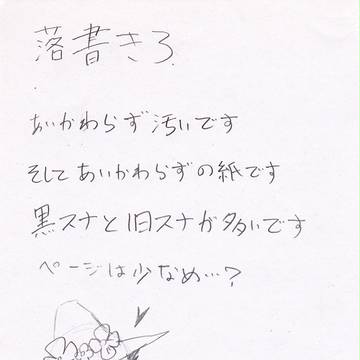 落書きろ
あいかわらず汚いです
そしてあいかわらずの紙です
黒スナと旧スナが多いです
ページは少なめ…?